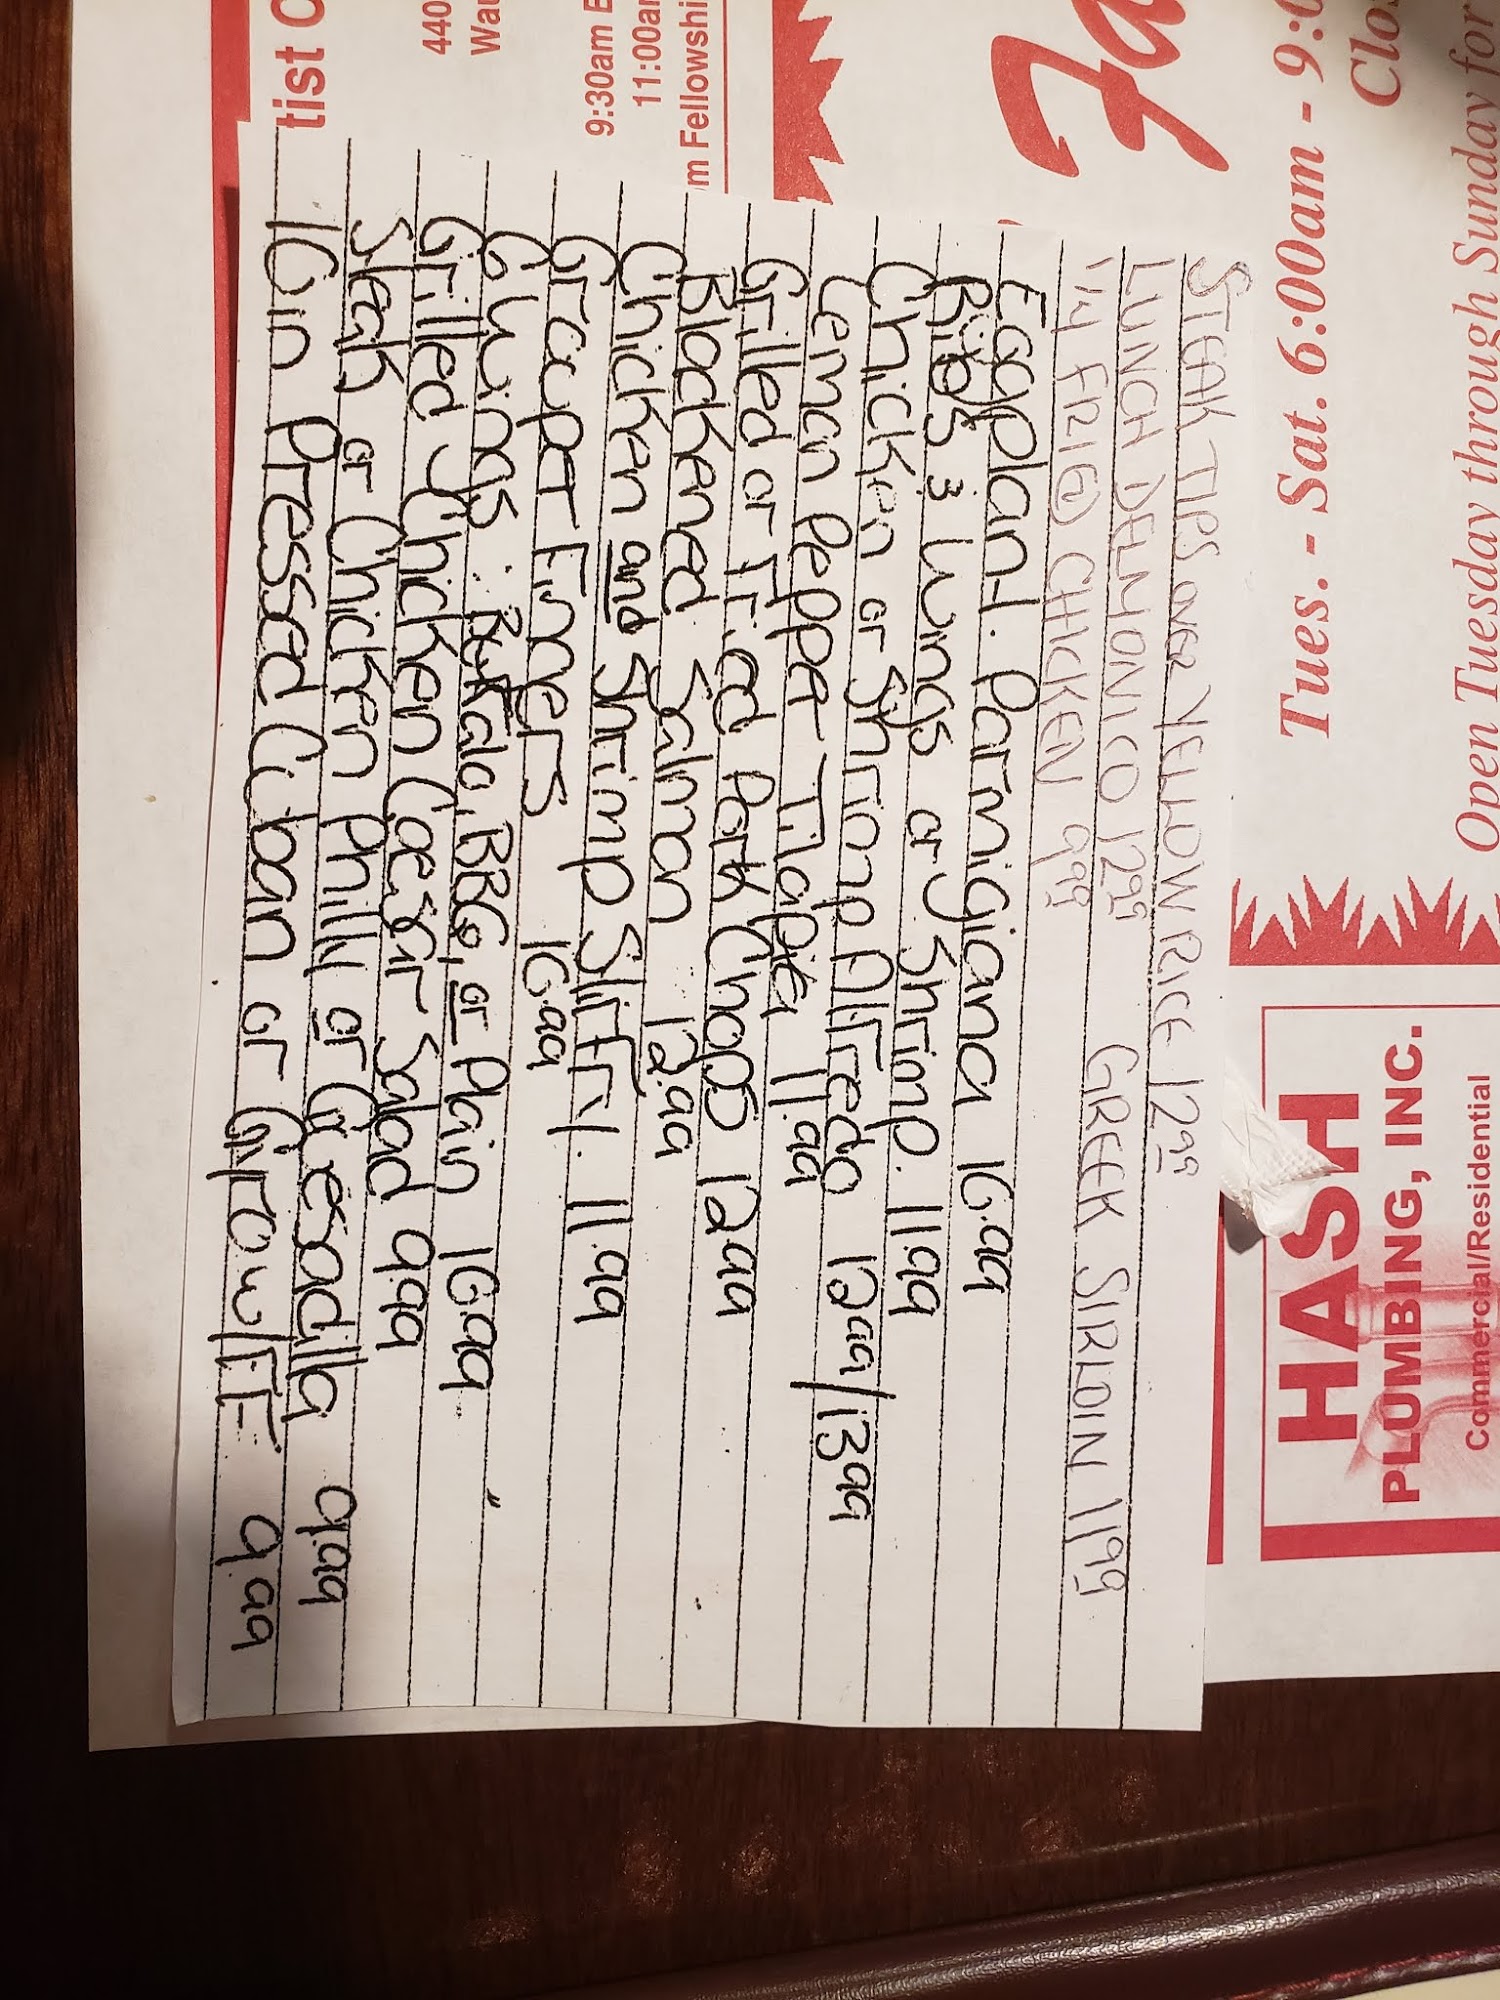 STEAK TIPS OVER YELLOW RICE 12 99
LUNCH DELMONICO 12 99
1/4 FRIED CHICKEN 9 99 GREEK SIRLOIN 11 99
Eggplant Parmigiana 10.99
Ribs 3 wings or Shrimp. 11.99
Chicken or Shrimp Alfredo 12.99/13.99
Lemon Pepper Tilapia 11.99
Grilled or Fried Pork Chops 12.99
Blackened Salmon 12.99
Chicken and Shrimp Stirfry. 11.99
Grouper Fingers 10.99
6 wings: Buffalo, BBQ, or Plain 10.99
Grilled Chicken Caesar Salad 9.99
Steak or Chicken Philly or Quesadilla 9.99
10in Pressed Cuban or Gyro w/FF 9.99
tist C
440
Wau
9:30am E
11:00am
m Fellowshi
Fa
Tues. - Sat. 6:00am - 9:0
Clos
Open Tuesday through Sunday for
HASH
PLUMBING, INC.
Commercial/Residential